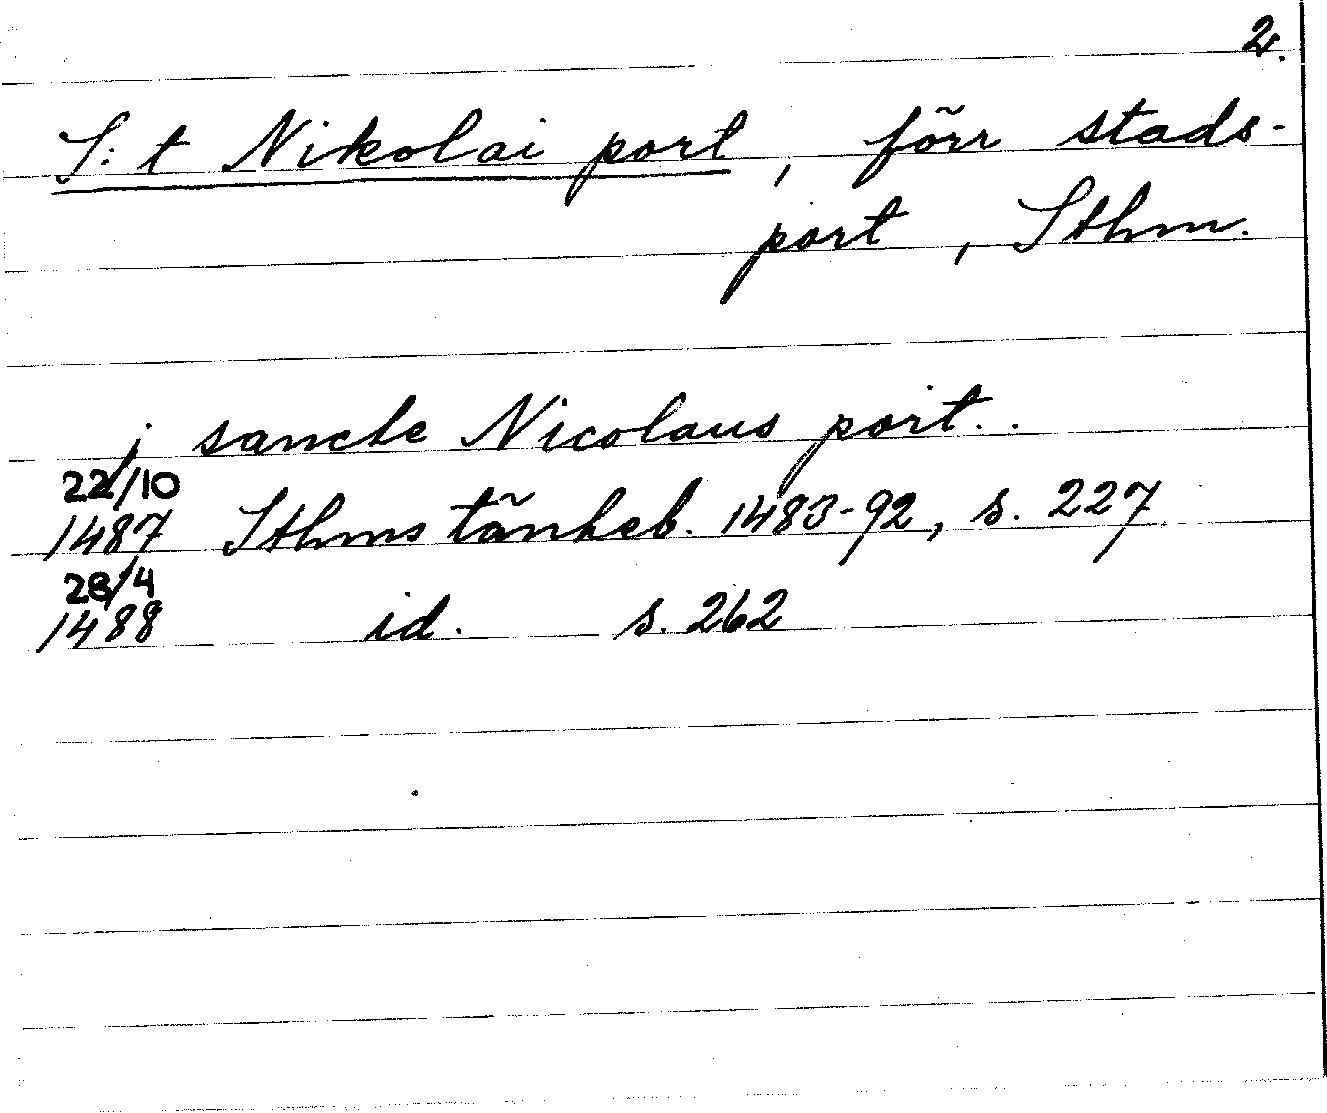 2.
S:t Nikolai port, förr stads-
port, Sthm.
j sancte Nicolaus port..
22/10
1487 Sthms tänkeb. 1483-92, s. 227
28/4
1488 id. s. 262